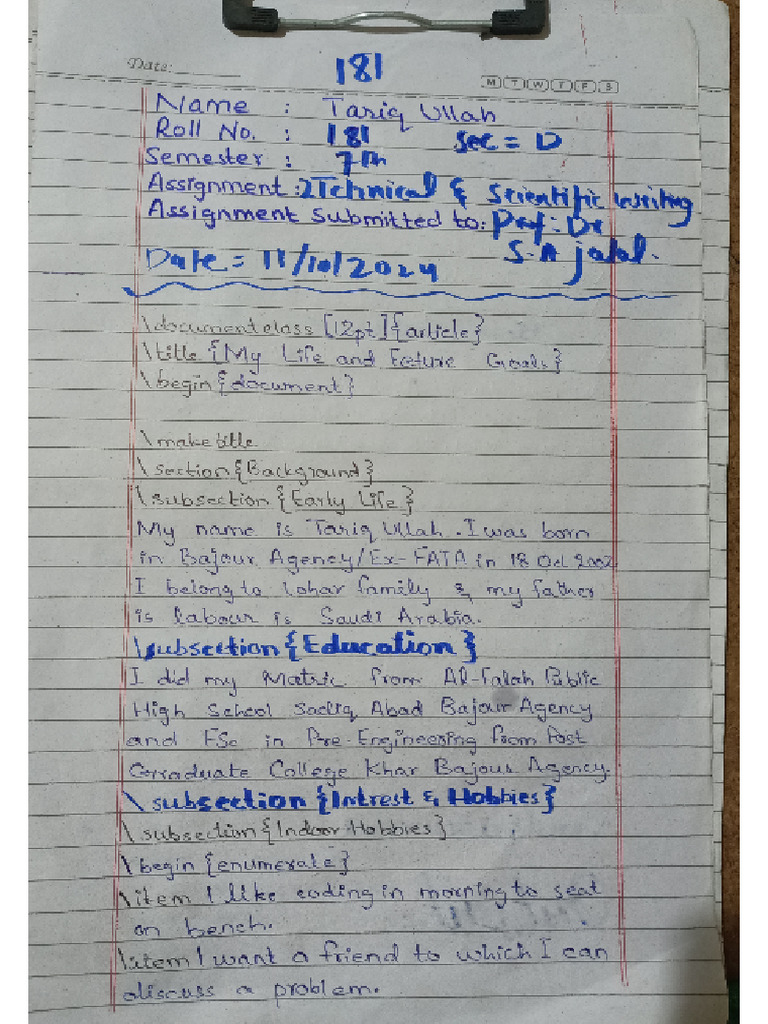 181
Date:
M T W T F S
Name : Tariq Ullah
Roll No. : 181 Sec = D
Semester : 7th
Assignment: 2 Technical & Scientific writing
Assignment submitted to: Prof: Dr
S.A jalal.
Date = 11/10/2024
\documentclass [12pt]{article}
\title {My Life and Feture Goals}
\begin {document}
\maketitle
\section {Background}
\subsection {Early Life}
My name is Tariq Ullah. I was born
in Bajour Agency/Ex-FATA in 18 Oct 2002
I belong to Lohar family & my father
is labour is Saudi Arabia.
\subsection {Education}
I did my Matric from Al-Falah Public
High School Sadiq Abad Bajour Agency
and FSc in Pre-Engineering from Post
Graduate College Khar Bajour Agency.
\subsection {Intrest & Hobbies}
\subsection {Indoor Hobbies}
\begin {enumerate}
\item I like coding in morning to seat
on bench.
\item I want a friend to which I can
discuss a problem.